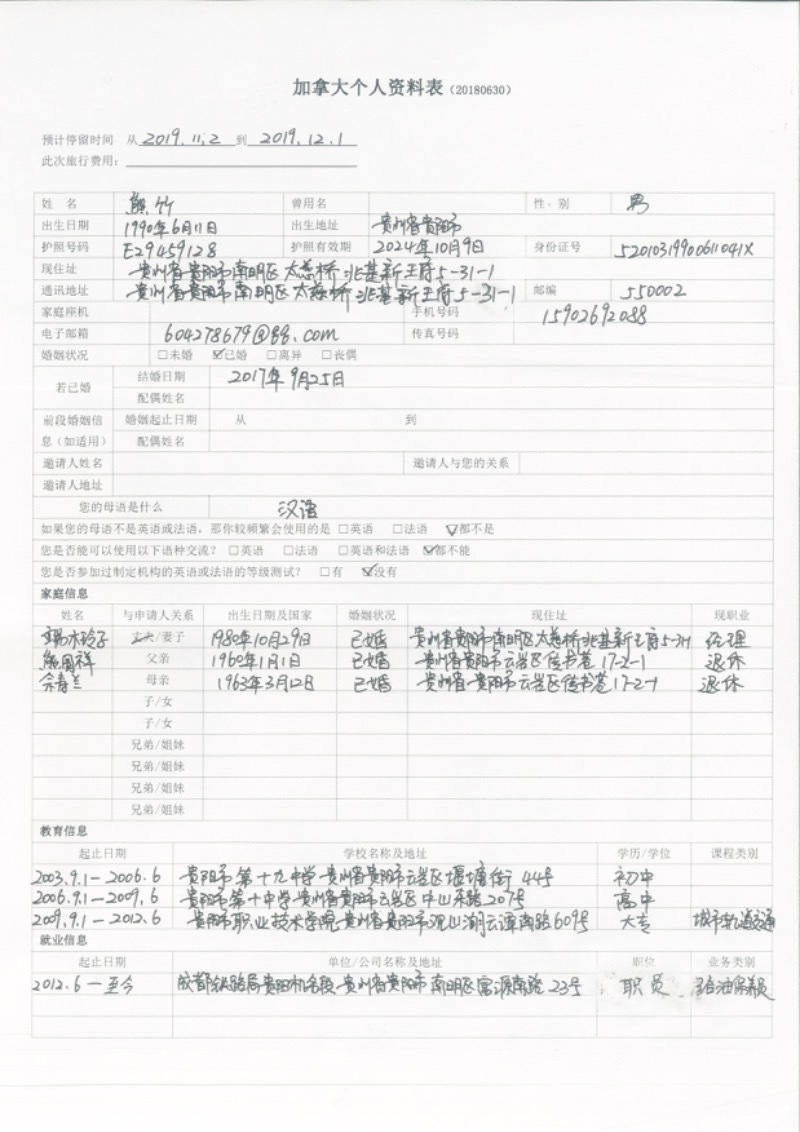 加拿大个人资料表（20180630）
预计停留时间 从 2019.11.2 到 2019.12.1
此次旅行费用：
姓 名 熊竹 曾用名 性 别 男
出生日期 1990年6月11日 出生地址 贵州省贵阳市
护照号码 E29459128 护照有效期 2024年10月9日 身份证号 52010319900611041X
现住址 贵州省贵阳市南明区太慈桥兆基新王府5-31-1
通讯地址 贵州省贵阳市南明区太慈桥兆基新王府5-31-1 邮编 550002
家庭座机 手机号码 15902692088
电子邮箱 604278679@qq.com 传真号码
婚姻状况 □未婚 ☑已婚 □离异 □丧偶
若已婚 结婚日期 2017年9月25日
配偶姓名
前段婚姻信息（如适用） 婚姻起止日期 从 到
配偶姓名
邀请人姓名 邀请人与您的关系
邀请人地址
您的母语是什么 汉语
如果您的母语不是英语或法语，那你较频繁会使用的是 □英语 □法语 ☑都不是
您是否能可以使用以下语种交流？ □英语 □法语 □英语和法语 ☑都不能
您是否参加过制定机构的英语或法语的等级测试？ □有 ☑没有
家庭信息
姓名 与申请人关系 出生日期及国家 婚姻状况 现住址 现职业
丈夫/妻子 1980年10月29日 已婚 贵州省贵阳市南明区太慈桥兆基新王府5-31-1 经理
熊周祥 父亲 1960年1月1日 已婚 贵州省贵阳市云岩区传书巷17-2-1 退休
余春兰 母亲 1963年3月12日 已婚 贵州省贵阳市云岩区传书巷17-2-1 退休
子/女
子/女
兄弟/姐妹
兄弟/姐妹
兄弟/姐妹
兄弟/姐妹
教育信息
起止日期 学校名称及地址 学历/学位 课程类别
2003.9.1-2006.6 贵阳市第十九中学 贵州省贵阳市云岩区堰塘街44号 初中
2006.9.1-2009.6 贵阳市第十中学 贵州省贵阳市云岩区中山东路207号 高中
2009.9.1-2012.6 贵阳市职业技术学院 贵州省贵阳市观山湖云潭南路609号 大专 城市轨道交通
就业信息
起止日期 单位/公司名称及地址 职位 业务类别
2012.6-至今 成都铁路局贵阳机务段 贵州省贵阳市南明区富源南路23号 职员 给油保养员